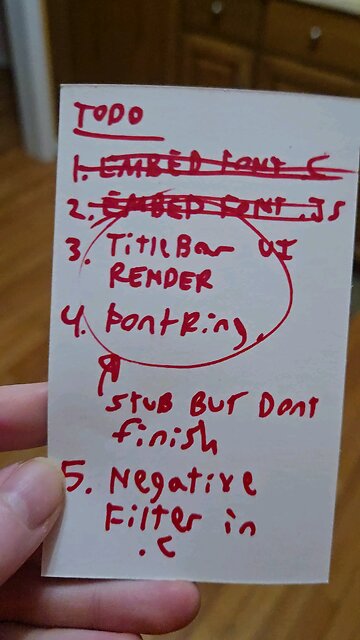 TODO
1. EMBED FONT C
2. EMBED FONT .JS
3. TitleBar UI
RENDER
4. FontRing.
STUB BUT DONT
finish
5. Negative
Filter in
.C